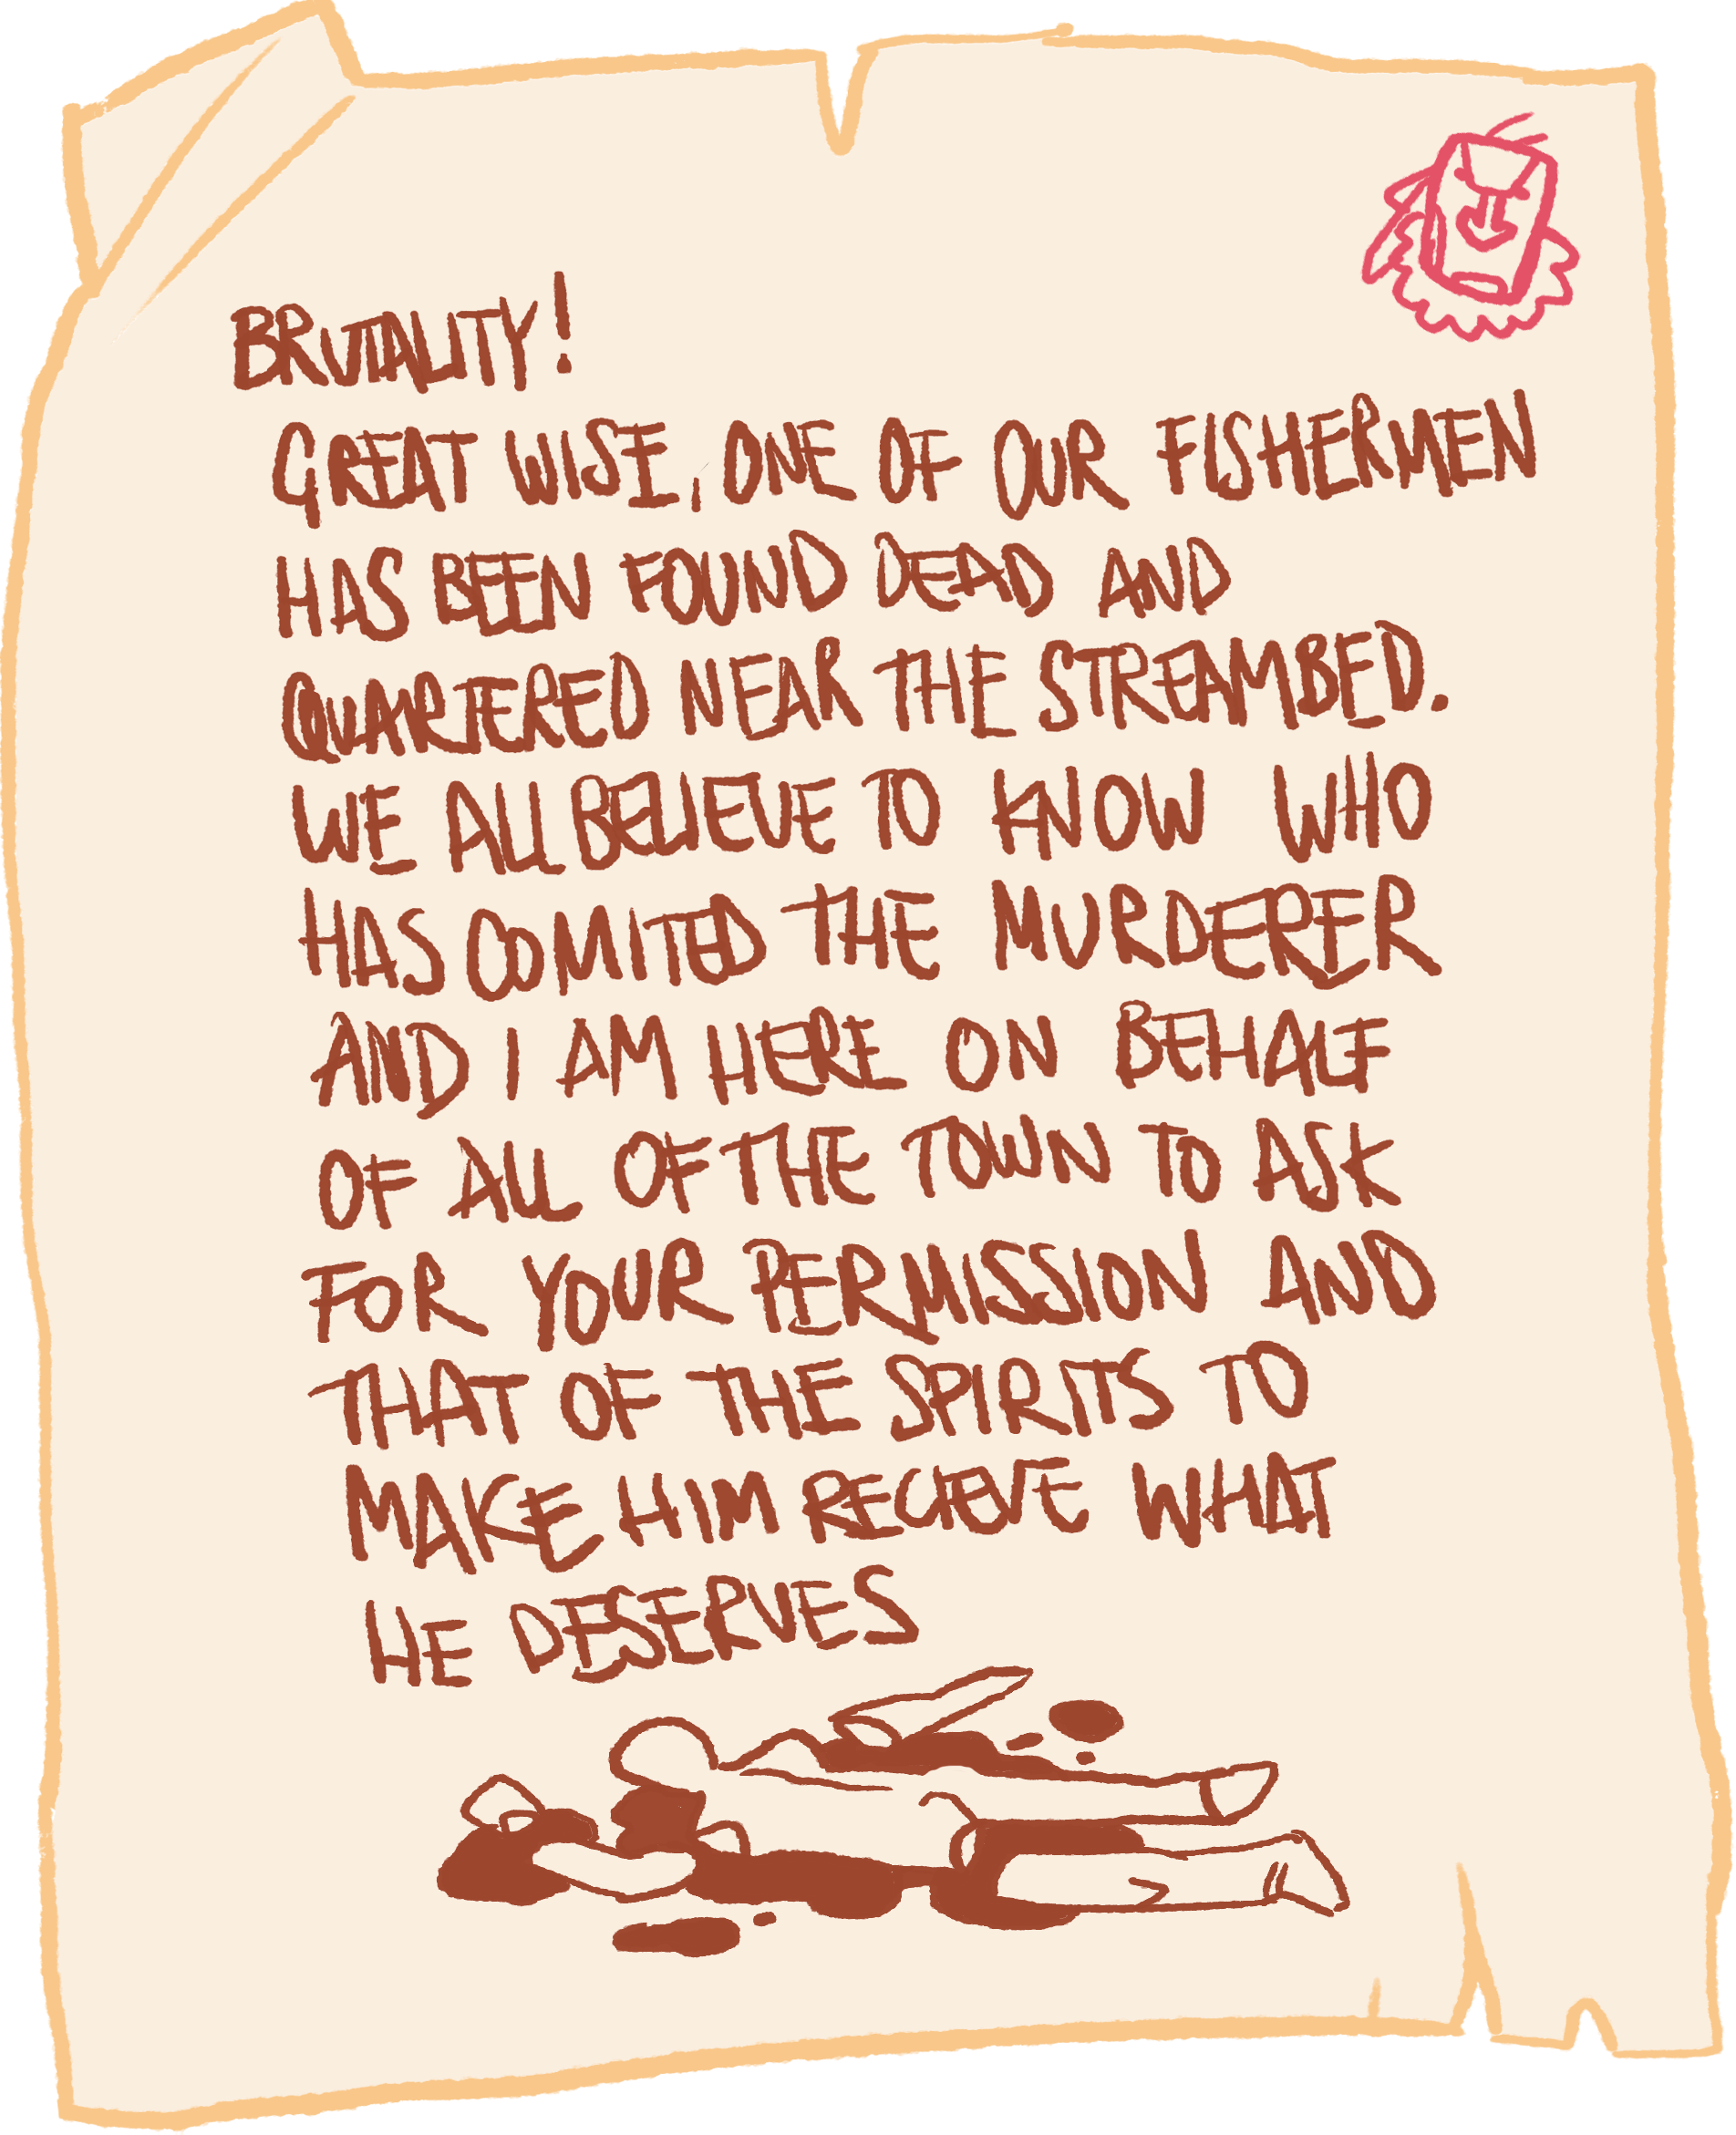 BRUTALITY!
GREAT WISE, ONE OF OUR FISHERMEN
HAS BEEN FOUND DEAD AND
QUARTERED NEAR THE STREAMBED.
WE ALL BELIEVE TO KNOW WHO
HAS COMITED THE MURDERER
AND I AM HERE ON BEHALF
OF ALL OF THE TOWN TO ASK
FOR YOUR PERMISSION AND
THAT OF THE SPIRITS TO
MAKE HIM RECIEVE WHAT
HE DESERVES